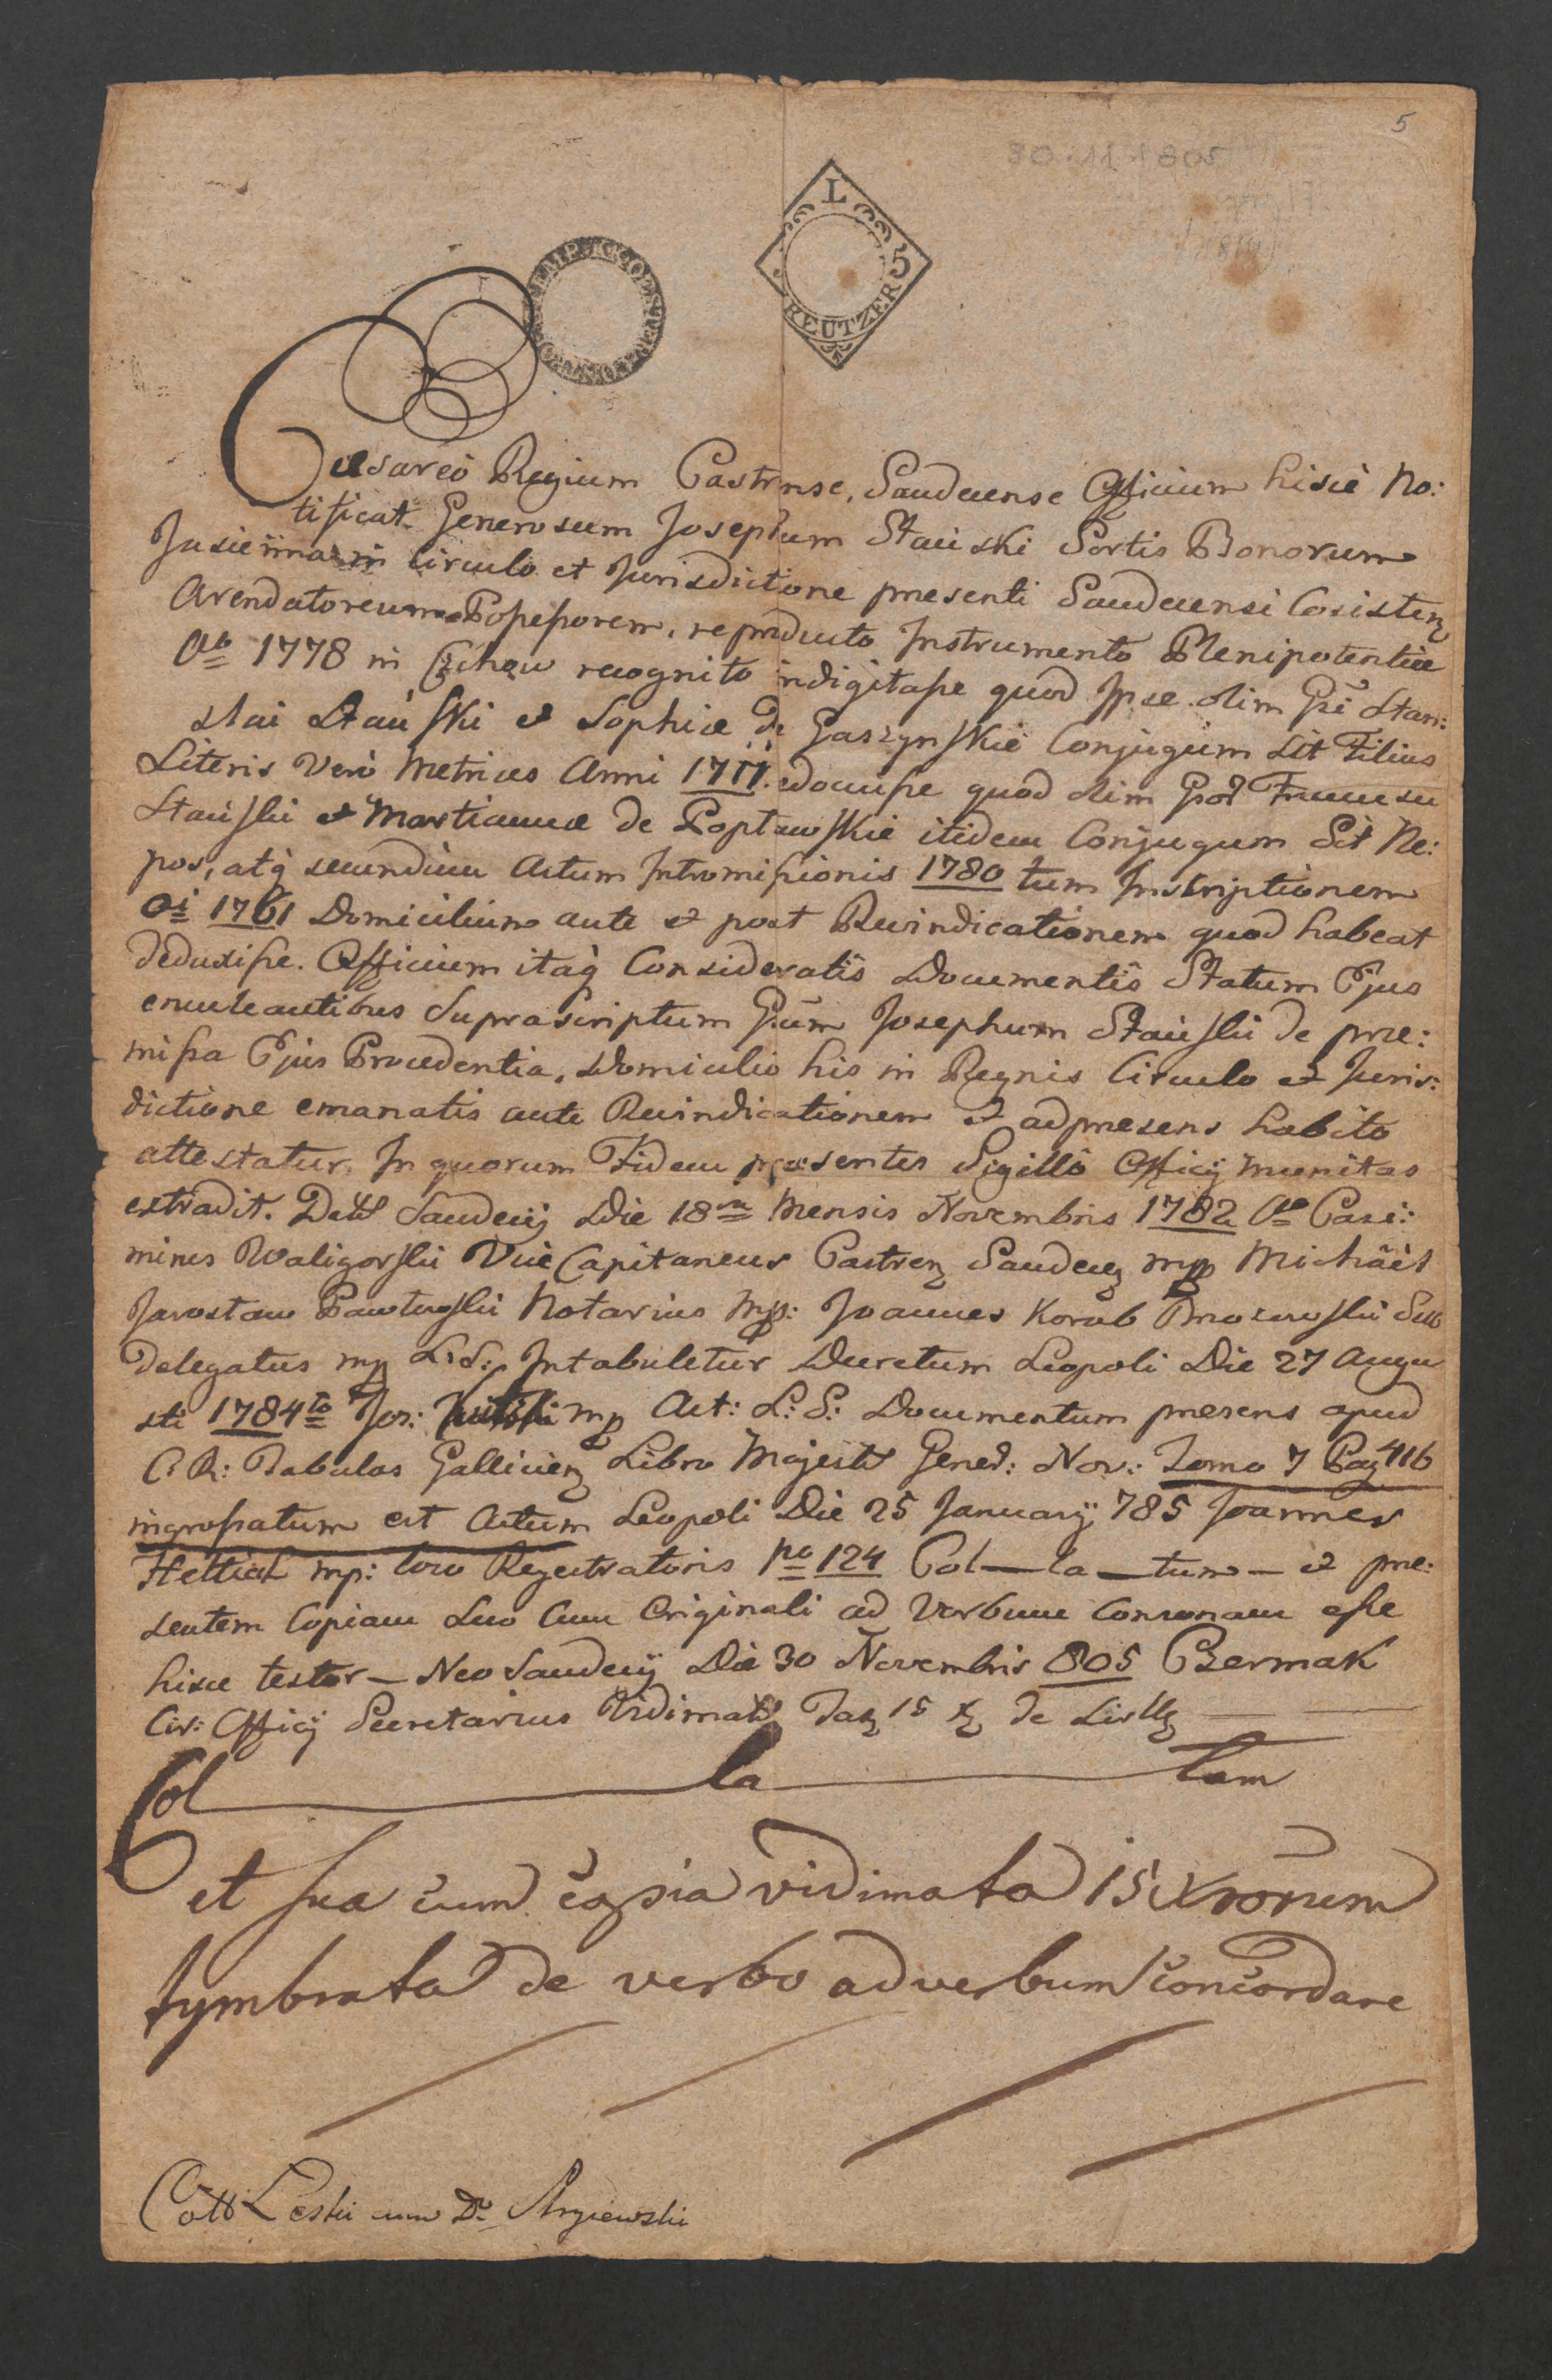 5
L
5
REUTZER
Caesareò Regium Castrense, Sandecense Officium hiscè No:
tificat Generosum Josephum Stauski Sortis Bonorum
in Circulo et Jurisdictione presenti Sandecensi Cosisten
Arendatoreum Possessorem, reproducto Instrumento Plenipotentiæ
Ao 1778 in Czchow recognito indigitasse quod Ipse olim Stani:
slai Stauski et Sophiæ de Gaszynskie Conjugum Sit Filius
Literis Verò Metrices Anni docuisse quod olim
Stauski et Martiannæ de Popławskie itidem Conjugum Sit Ne:
pos, atq secundùm Actum Intromissionis 1780 tum Inscriptionem
1761 Domicilium ante et post Revindicationem quod habeat
deduxisse. Officium itaq Consideratîs Documentîs Statum Ejus
enucleantibus Suprascriptum Josephum Stauski de præ:
missa Ejus Procedentia, Domicilio his in Regnis Circulo et Juris:
dictione emanatis ante Revindicationem et ad presens habito
attestatur. In quorum Fidem præsentes Sigillô Officij munitas
extradit. Datt Sandecij Die 18va Mensis Novembris 1782 Ao Casi:
mirus Waligorski Vice Capitaneus Castren Sandecen mpp Michâêl
Jarosław Pawłowski Notarius mpp: Joannes Korab Brozowski Sub
Delegatus mpp L:S: Intabuletur Decretum Leopoli Die 27 Augu
sti 1784to Jos: mpp Act: L: S: Documentum presens apud
C: R: Tabulas Gallicien Libro Majest Gened: Nov: Tomo 7 Pag 416
ingrossatum est Actum Leopoli Die 25 January 785 Joannes
Hettial mp: loco Regestratoris po 124 Col—la—tum— et præ:
sentem Copiam Suo Cum Originali ad Verbum Consonam esse
hisce testor — Neo Sandecij Die 30 Novembris 805 Czermak
Civ: Officij Secretarius Vidimat Tax 15 x de
Col la tam
et sua cum copia vidimata 15 Xrorum
tymbrata de verbo ad verbum concordare
Leski cum